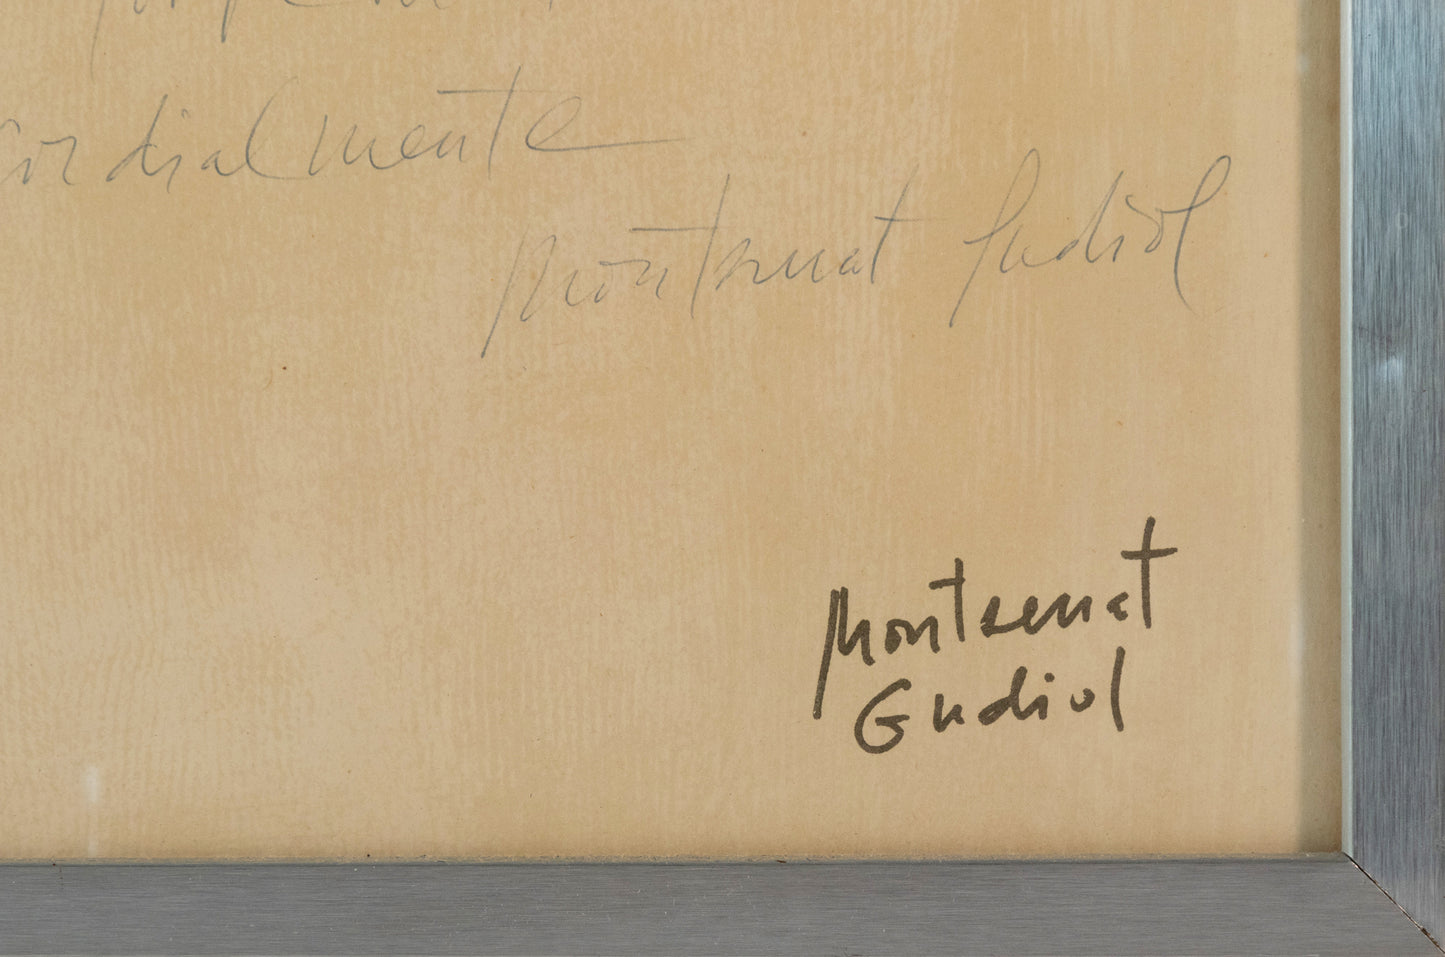 Cordialmente
Montserrat Gudiol
Montserrat
Gudiol